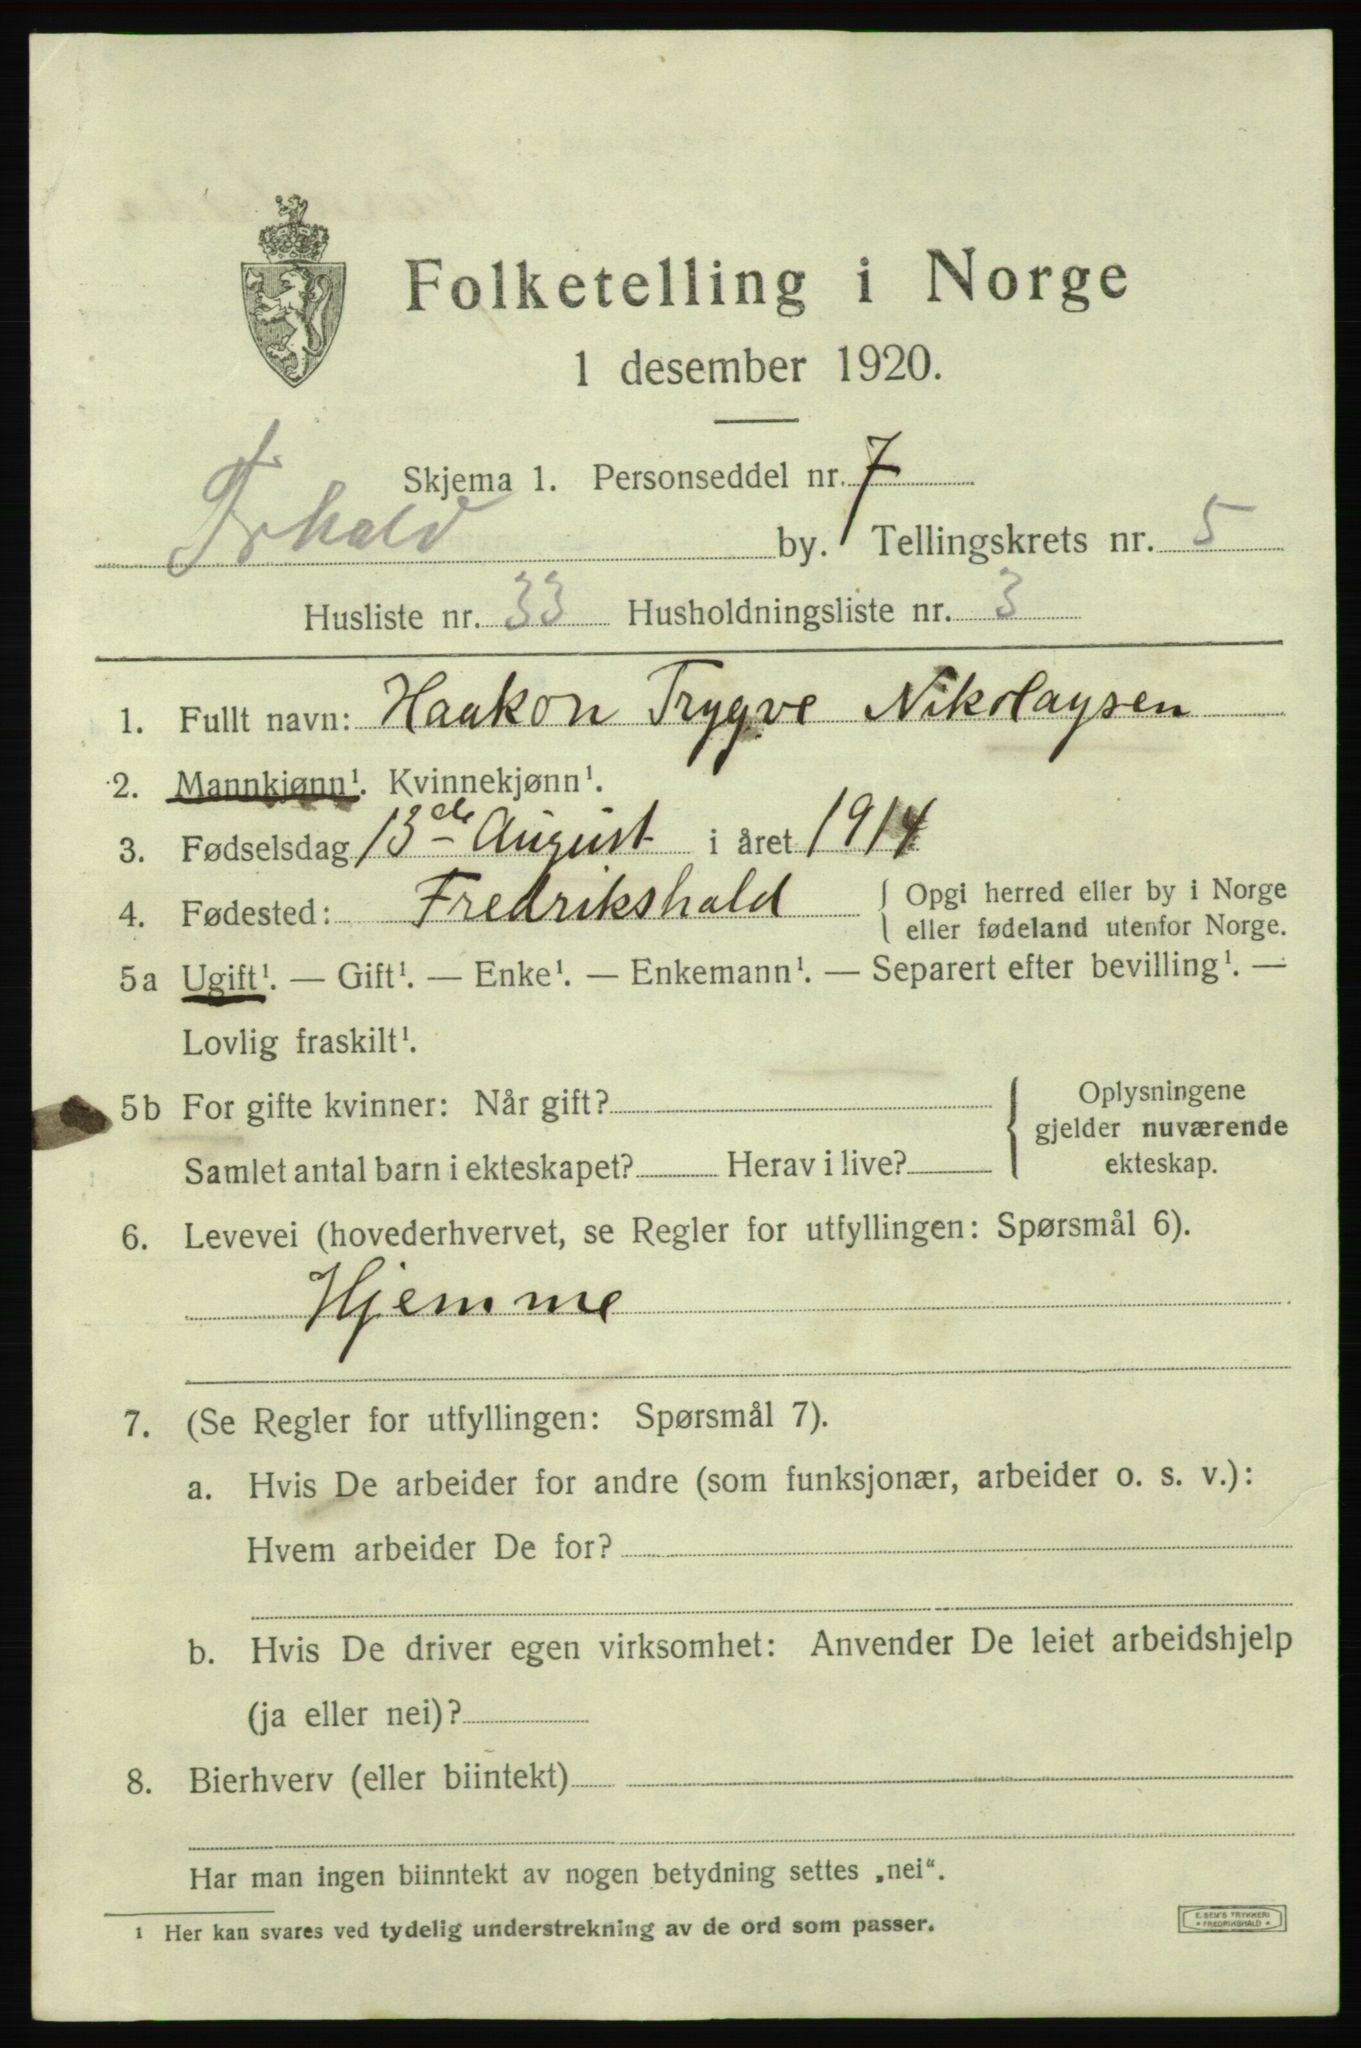 Folketelling i Norge
1 desember 1920.
Skjema 1. Personseddel nr. 7
Frhald by. Tellingskrets nr. 5
Husliste nr. 33 Husholdningsliste nr. 3
1. Fullt navn: Haakon Trygve Nikolaysen
2. Mannkjønn¹. Kvinnekjønn¹.
3. Fødselsdag 13de August i året 1914
4. Fødested: Fredrikshald { Opgi herred eller by i Norge
eller fødeland utenfor Norge.
5a Ugift¹. — Gift¹. — Enke¹. — Enkemann¹. — Separert efter bevilling¹. —
Lovlig fraskilt¹.
5b For gifte kvinner: Når gift? { Oplysningene
gjelder nuværende
Samlet antal barn i ekteskapet? Herav i live? ekteskap.
6. Levevei (hovederhvervet, se Regler for utfyllingen: Spørsmål 6).
Hjemme
7. (Se Regler for utfyllingen: Spørsmål 7).
a. Hvis De arbeider for andre (som funksjonær, arbeider o. s. v.):
Hvem arbeider De for?
b. Hvis De driver egen virksomhet: Anvender De leiet arbeidshjelp
(ja eller nei)?
8. Bierhverv (eller biintekt)
Har man ingen biinntekt av nogen betydning settes „nei“.
¹ Her kan svares ved tydelig understrekning av de ord som passer.
E. SEM'S TRYKKERI
FREDRIKSHALD